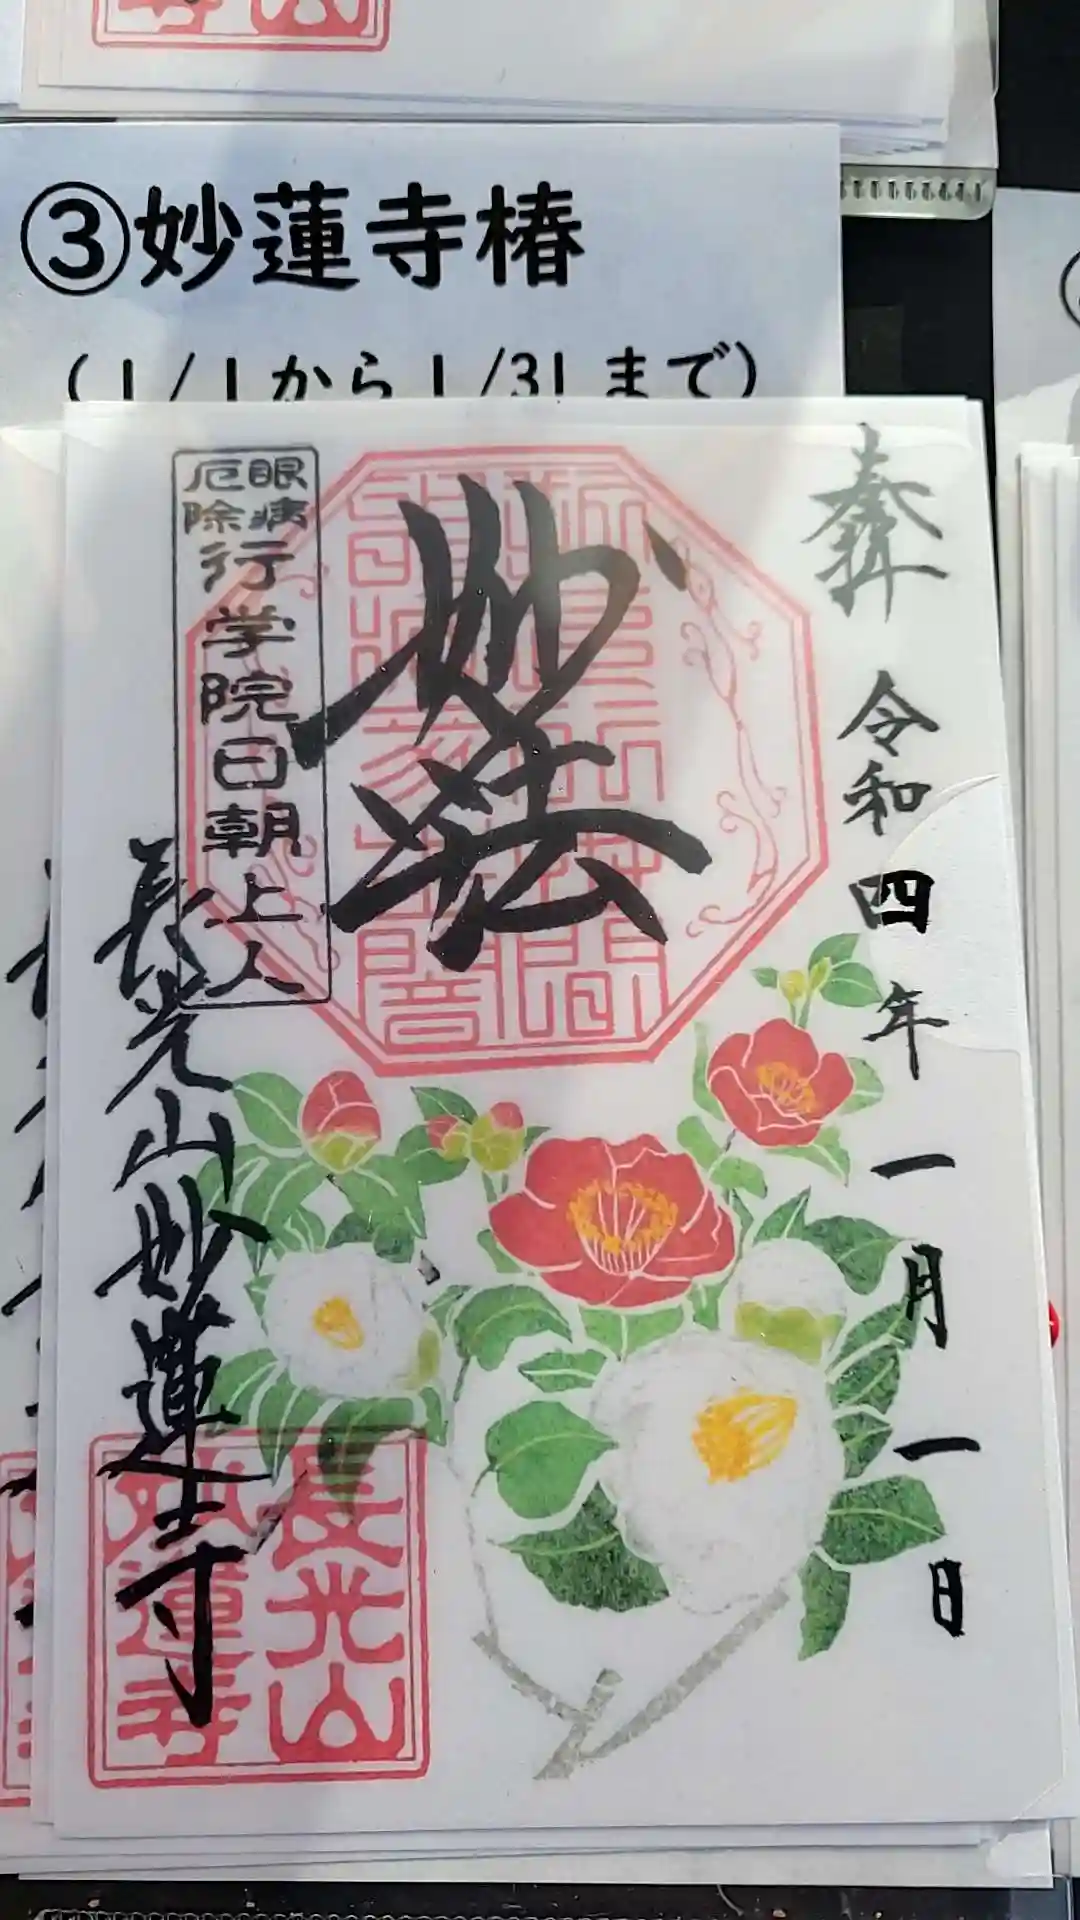 ③妙蓮寺椿
(1/1から1/31まで)
奉拝
令和四年一月一日
妙法
眼病
厄除
行学院日朝上人
長光山妙蓮寺
長光山
妙蓮寺